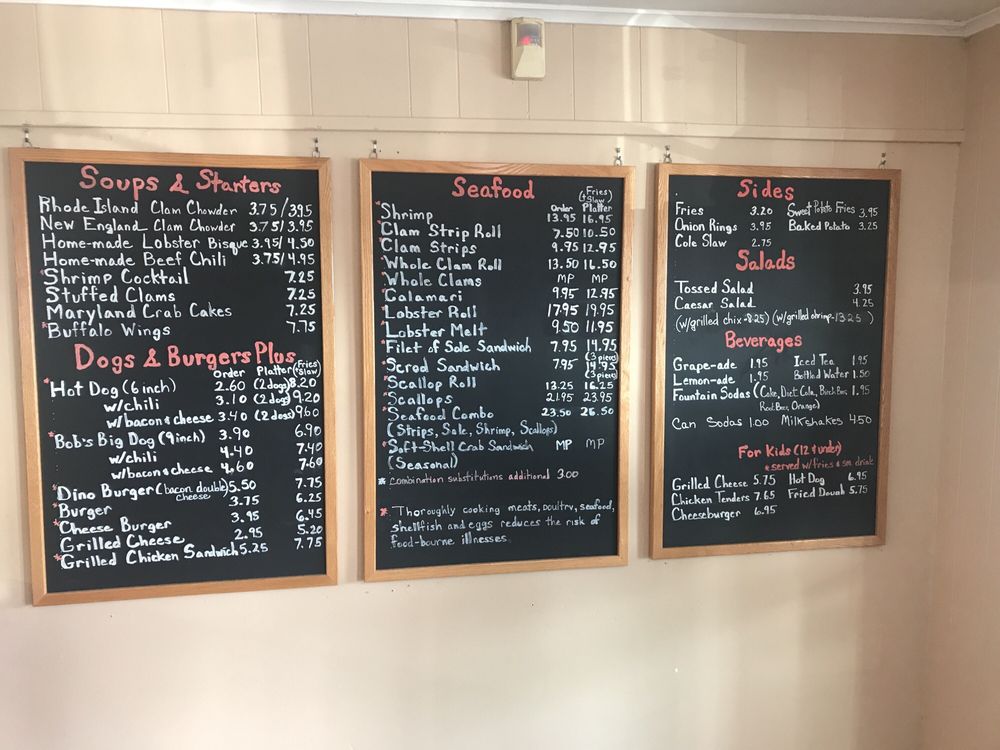 Soups & Starters
Rhode Island Clam Chowder 3.75/3.95
New England Clam Chowder 3.75/3.95
Home-made Lobster Bisque 3.95/4.50
Home-made Beef Chili 3.75/4.95
*Shrimp Cocktail 7.25
Stuffed Clams 7.25
Maryland Crab Cakes 7.25
*Buffalo Wings 7.75
Dogs & Burgers Plus
Order Platter (Fries & Slaw)
*Hot Dog (6 inch) 2.60 (2 dogs) 8.20
w/chili 3.10 (2 dogs) 9.20
w/bacon & cheese 3.40 (2 dogs) 9.60
*Bob's Big Dog (9 inch) 3.90 6.90
w/chili 4.40 7.40
w/bacon & cheese 4.60 7.60
*Dino Burger (bacon double cheese) 5.50 7.75
*Burger 3.75 6.25
*Cheese Burger 3.95 6.45
Grilled Cheese 2.95 5.20
*Grilled Chicken Sandwich 5.25 7.75
Seafood
(Fries & Slaw)
Order Platter
*Shrimp 13.95 16.95
*Clam Strip Roll 7.50 10.50
*Clam Strips 9.95 12.95
*Whole Clam Roll 13.50 16.50
*Whole Clams MP MP
*Calamari 9.95 12.95
*Lobster Roll 17.95 19.95
*Lobster Melt 9.50 11.95
*Filet of Sole Sandwich 7.95 14.95
(3 pieces)
*Scrod Sandwich 7.95 14.95
(3 pieces)
*Scallop Roll 13.25 16.25
*Scallops 21.95 23.95
*Seafood Combo 23.50 26.50
(Strips, Sole, Shrimp, Scallops)
*Soft-Shell Crab Sandwich MP MP
(Seasonal)
* combination substitutions additional 3.00
* Thoroughly cooking meats, poultry, seafood,
shellfish and eggs reduces the risk of
food-bourne illnesses.
Sides
Fries 3.20 Sweet Potato Fries 3.95
Onion Rings 3.95 Baked Potato 3.25
Cole Slaw 2.75
Salads
Tossed Salad 3.95
Caesar Salad 4.25
(w/grilled chix-8.25) (w/grilled shrimp-13.25)
Beverages
Grape-ade 1.95 Iced Tea 1.95
Lemon-ade 1.95 Bottled Water 1.50
Fountain Sodas (Coke, Diet Coke, Birch Beer, 1.95
Root Beer, Orange)
Can Sodas 1.00 Milkshakes 4.50
For Kids (12 & under)
* served w/fries & sm drink
Grilled Cheese 5.75 Hot Dog 6.95
Chicken Tenders 7.65 Fried Dough 5.75
Cheeseburger 6.95